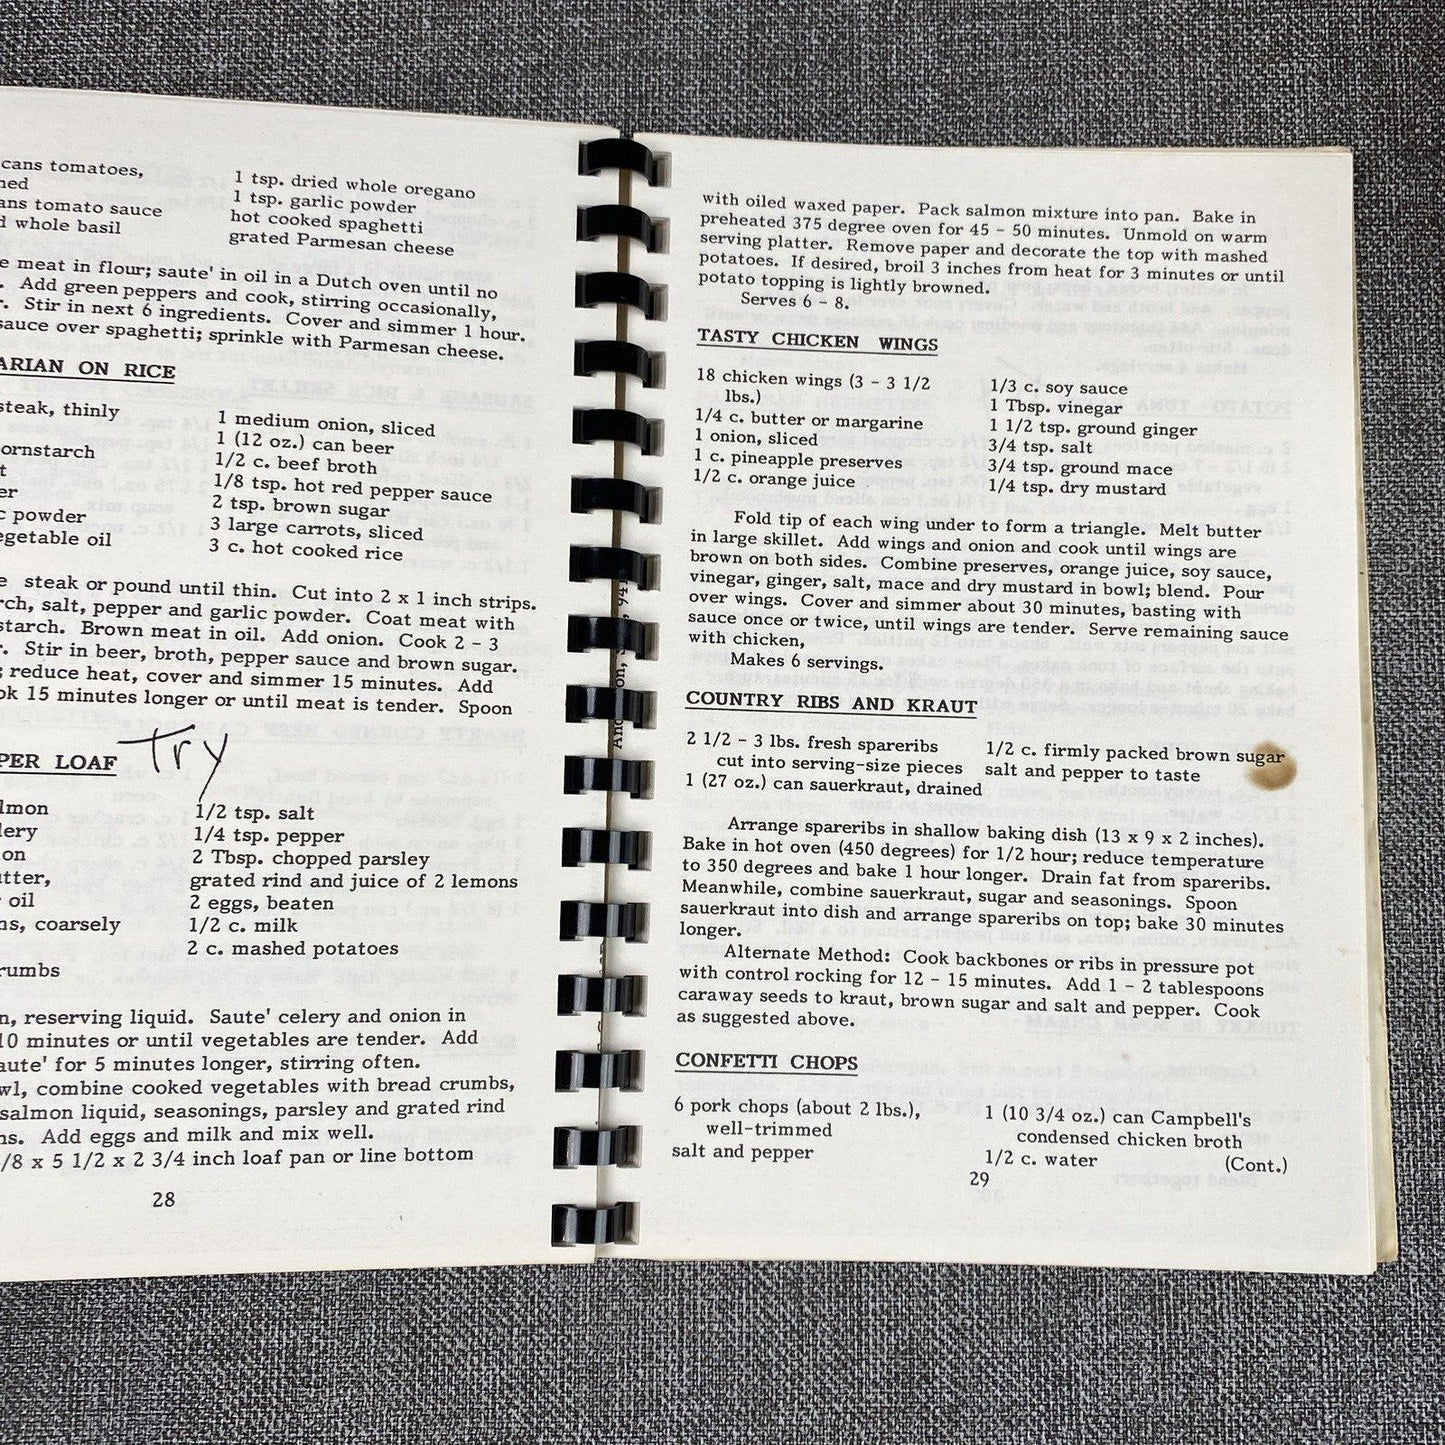 cans tomatoes,
ans tomato sauce
whole basil
1 tsp. dried whole oregano
1 tsp. garlic powder
hot cooked spaghetti
grated Parmesan cheese
meat in flour; saute' in oil in a Dutch oven until no
. Add green peppers and cook, stirring occasionally,
. Stir in next 6 ingredients. Cover and simmer 1 hour.
sauce over spaghetti; sprinkle with Parmesan cheese.
ARIAN ON RICE
steak, thinly
ornstarch
t
er
c powder
egetable oil
1 medium onion, sliced
1 (12 oz.) can beer
1/2 c. beef broth
1/8 tsp. hot red pepper sauce
2 tsp. brown sugar
3 large carrots, sliced
3 c. hot cooked rice
e steak or pound until thin. Cut into 2 x 1 inch strips.
rch, salt, pepper and garlic powder. Coat meat with
starch. Brown meat in oil. Add onion. Cook 2 - 3
. Stir in beer, broth, pepper sauce and brown sugar.
; reduce heat, cover and simmer 15 minutes. Add
ok 15 minutes longer or until meat is tender. Spoon
PER LOAF Try
lmon
lery
on
utter,
oil
ns, coarsely
rumbs
1/2 tsp. salt
1/4 tsp. pepper
2 Tbsp. chopped parsley
grated rind and juice of 2 lemons
2 eggs, beaten
1/2 c. milk
2 c. mashed potatoes
n, reserving liquid. Saute' celery and onion in
10 minutes or until vegetables are tender. Add
aute' for 5 minutes longer, stirring often.
wl, combine cooked vegetables with bread crumbs,
salmon liquid, seasonings, parsley and grated rind
ns. Add eggs and milk and mix well.
/8 x 5 1/2 x 2 3/4 inch loaf pan or line bottom
28
with oiled waxed paper. Pack salmon mixture into pan. Bake in
preheated 375 degree oven for 45 - 50 minutes. Unmold on warm
serving platter. Remove paper and decorate the top with mashed
potatoes. If desired, broil 3 inches from heat for 3 minutes or until
potato topping is lightly browned.
Serves 6 - 8.
TASTY CHICKEN WINGS
18 chicken wings (3 - 3 1/2
lbs.)
1/4 c. butter or margarine
1 onion, sliced
1 c. pineapple preserves
1/2 c. orange juice
1/3 c. soy sauce
1 Tbsp. vinegar
1 1/2 tsp. ground ginger
3/4 tsp. salt
3/4 tsp. ground mace
1/4 tsp. dry mustard
Fold tip of each wing under to form a triangle. Melt butter
in large skillet. Add wings and onion and cook until wings are
brown on both sides. Combine preserves, orange juice, soy sauce,
vinegar, ginger, salt, mace and dry mustard in bowl; blend. Pour
over wings. Cover and simmer about 30 minutes, basting with
sauce once or twice, until wings are tender. Serve remaining sauce
with chicken,
Makes 6 servings.
COUNTRY RIBS AND KRAUT
2 1/2 - 3 lbs. fresh spareribs
cut into serving-size pieces
1 (27 oz.) can sauerkraut, drained
1/2 c. firmly packed brown sugar
salt and pepper to taste
Arrange spareribs in shallow baking dish (13 x 9 x 2 inches).
Bake in hot oven (450 degrees) for 1/2 hour; reduce temperature
to 350 degrees and bake 1 hour longer. Drain fat from spareribs.
Meanwhile, combine sauerkraut, sugar and seasonings. Spoon
sauerkraut into dish and arrange spareribs on top; bake 30 minutes
longer.
Alternate Method: Cook backbones or ribs in pressure pot
with control rocking for 12 - 15 minutes. Add 1 - 2 tablespoons
caraway seeds to kraut, brown sugar and salt and pepper. Cook
as suggested above.
CONFETTI CHOPS
6 pork chops (about 2 lbs.),
well-trimmed
salt and pepper
1 (10 3/4 oz.) can Campbell's
condensed chicken broth
1/2 c. water (Cont.)
29